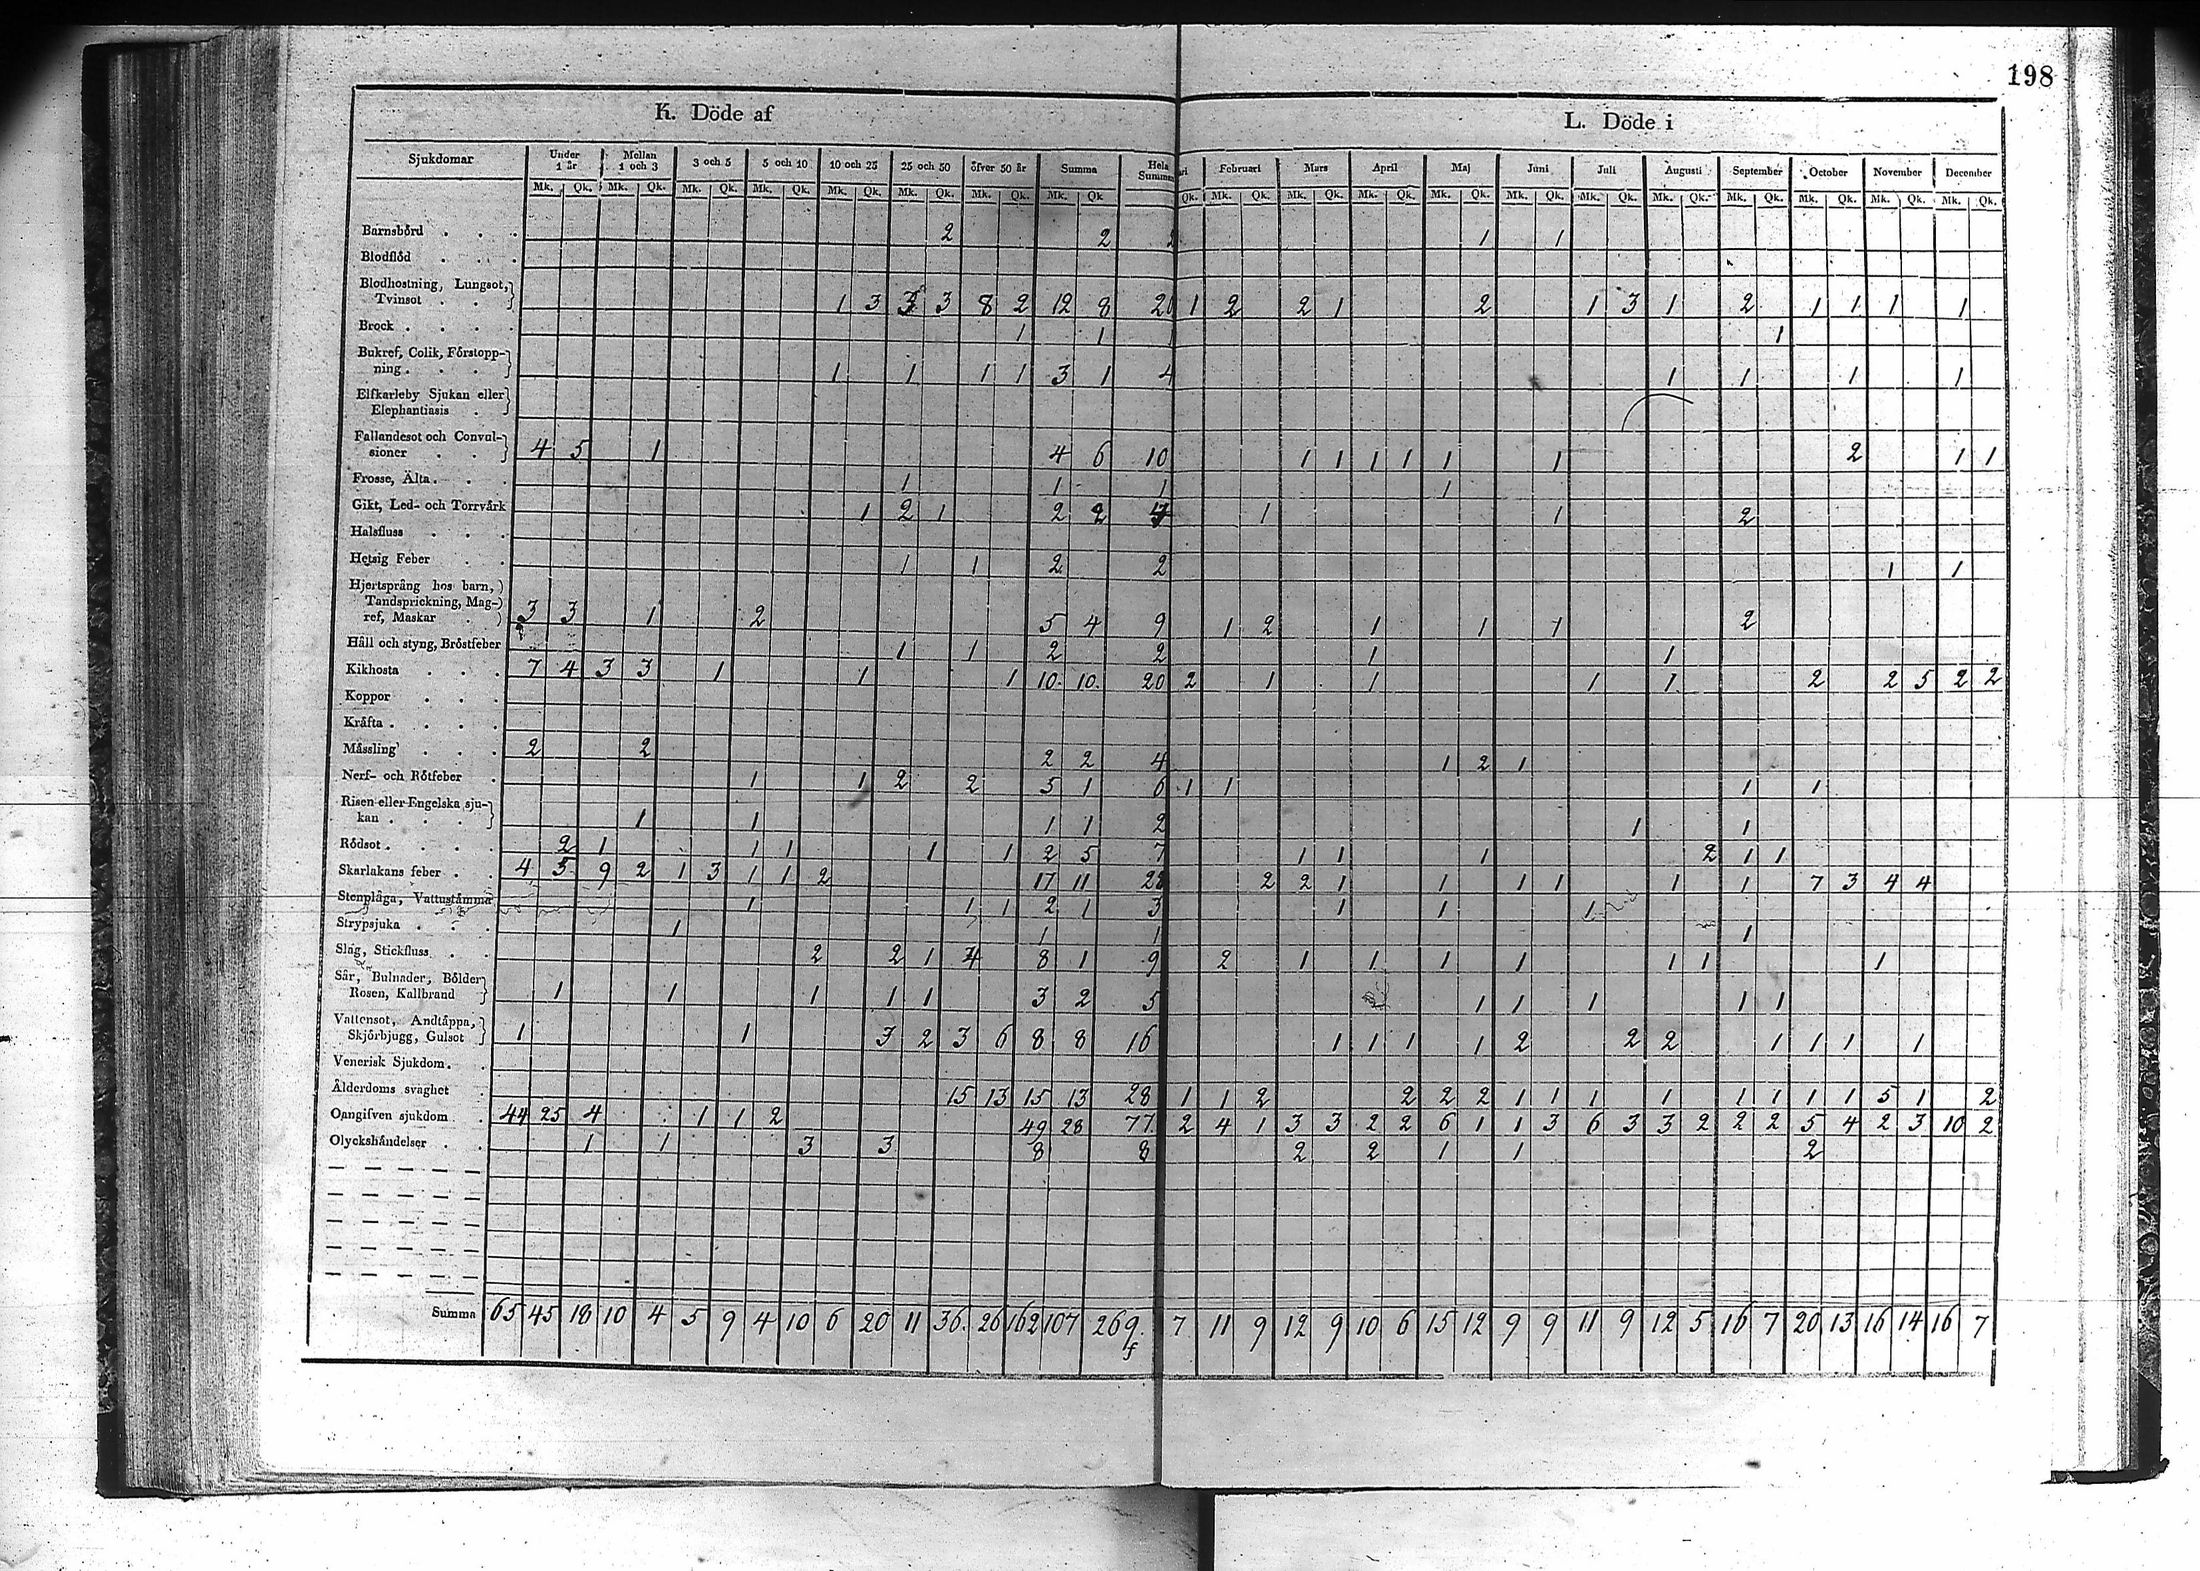 198
K. Döde af
L. Döde i
Sjukdomar Under 1 år Mellan 1 och 3 3 och 5 5 och 10 10 och 25 25 och 50 öfver 50 år Summa Hela Summan Februari Mars April Maj Juni Juli Augusti September October November December
Mk. Qk. Mk. Qk. Mk. Qk. Mk. Qk. Mk. Qk. Mk. Qk. Mk. Qk. Mk. Qk Qk. Mk. Qk. Mk. Qk. Mk. Qk. Mk. Qk. Mk. Qk. Mk. Qk. Mk. Qk. Mk. Qk. Mk. Qk. Mk. Qk. Mk. Qk.
Barnsbörd 2 2 2 1 1
Blodflöd
Blodhostning, Lungsot,
Tvinsot 1 3 3 3 8 2 12 8 20 1 2 2 1 2 1 3 1 2 1 1 1 1
Brock 1 1 1 1
Bukref, Colik, Förstopp-
ning 1 1 1 1 3 1 4 1 1 1 1
Elfkarleby Sjukan eller
Elephantiasis
Fallandesot och Convul-
sioner 4 5 1 4 6 10 1 1 1 1 1 1 2 1 1
Frosse, Älta 1 1 1 1
Gikt, Led- och Torrvärk 1 2 1 2 2 4 1 1 2
Halsfluss
Hetsig Feber 1 1 2 2 1 1
Hjertsprång hos barn,
Tandsprickning, Mag-
ref, Maskar 3 3 1 2 5 4 9 1 2 1 1 1 2
Håll och styng, Bröstfeber 1 1 2 2 1 1
Kikhosta 7 4 3 3 1 1 1 10 10 20 2 1 1 1 1 2 2 5 2 2
Koppor
Kräfta
Mässling 2 2 2 2 4 1 2 1
Nerf- och Rötfeber 1 1 2 2 5 1 6 1 1 1 1
Risen eller Engelska sju-
kan 1 1 1 1 2 1 1
Rödsot 2 1 1 1 1 1 2 5 7 1 1 1 2 1 1
Skarlakans feber 4 5 9 2 1 3 1 1 2 17 11 28 2 2 1 1 1 1 1 1 7 3 4 4
Stenplåga, Vattustämma 1 1 1 2 1 3 1 1 1
Strypsjuka 1 1 1 1
Slag, Stickfluss 2 2 1 4 8 1 9 2 1 1 1 1 1 1 1
Sår, Bulnader, Bölder
Rosen, Kallbrand 1 1 1 1 1 3 2 5 1 1 1 1 1
Vattensot, Andtäppa,
Skjörbjugg, Gulsot 1 1 3 2 3 6 8 8 16 1 1 1 1 2 2 2 1 1 1 1
Venerisk Sjukdom
Ålderdoms svaghet 15 13 15 13 28 1 1 2 2 2 2 1 1 1 1 1 1 1 1 5 1 2
Oangifven sjukdom 44 25 4 1 1 2 49 28 77 2 4 1 3 3 2 2 6 1 1 3 6 3 3 2 2 2 5 4 2 3 10 2
Olyckshändelser 1 1 3 3 8 8 2 2 1 1 2
Summa 65 45 18 10 4 5 9 4 10 6 20 11 36 26 162 107 269 7 11 9 12 9 10 6 15 12 9 9 11 9 12 5 16 7 20 13 16 14 16 7